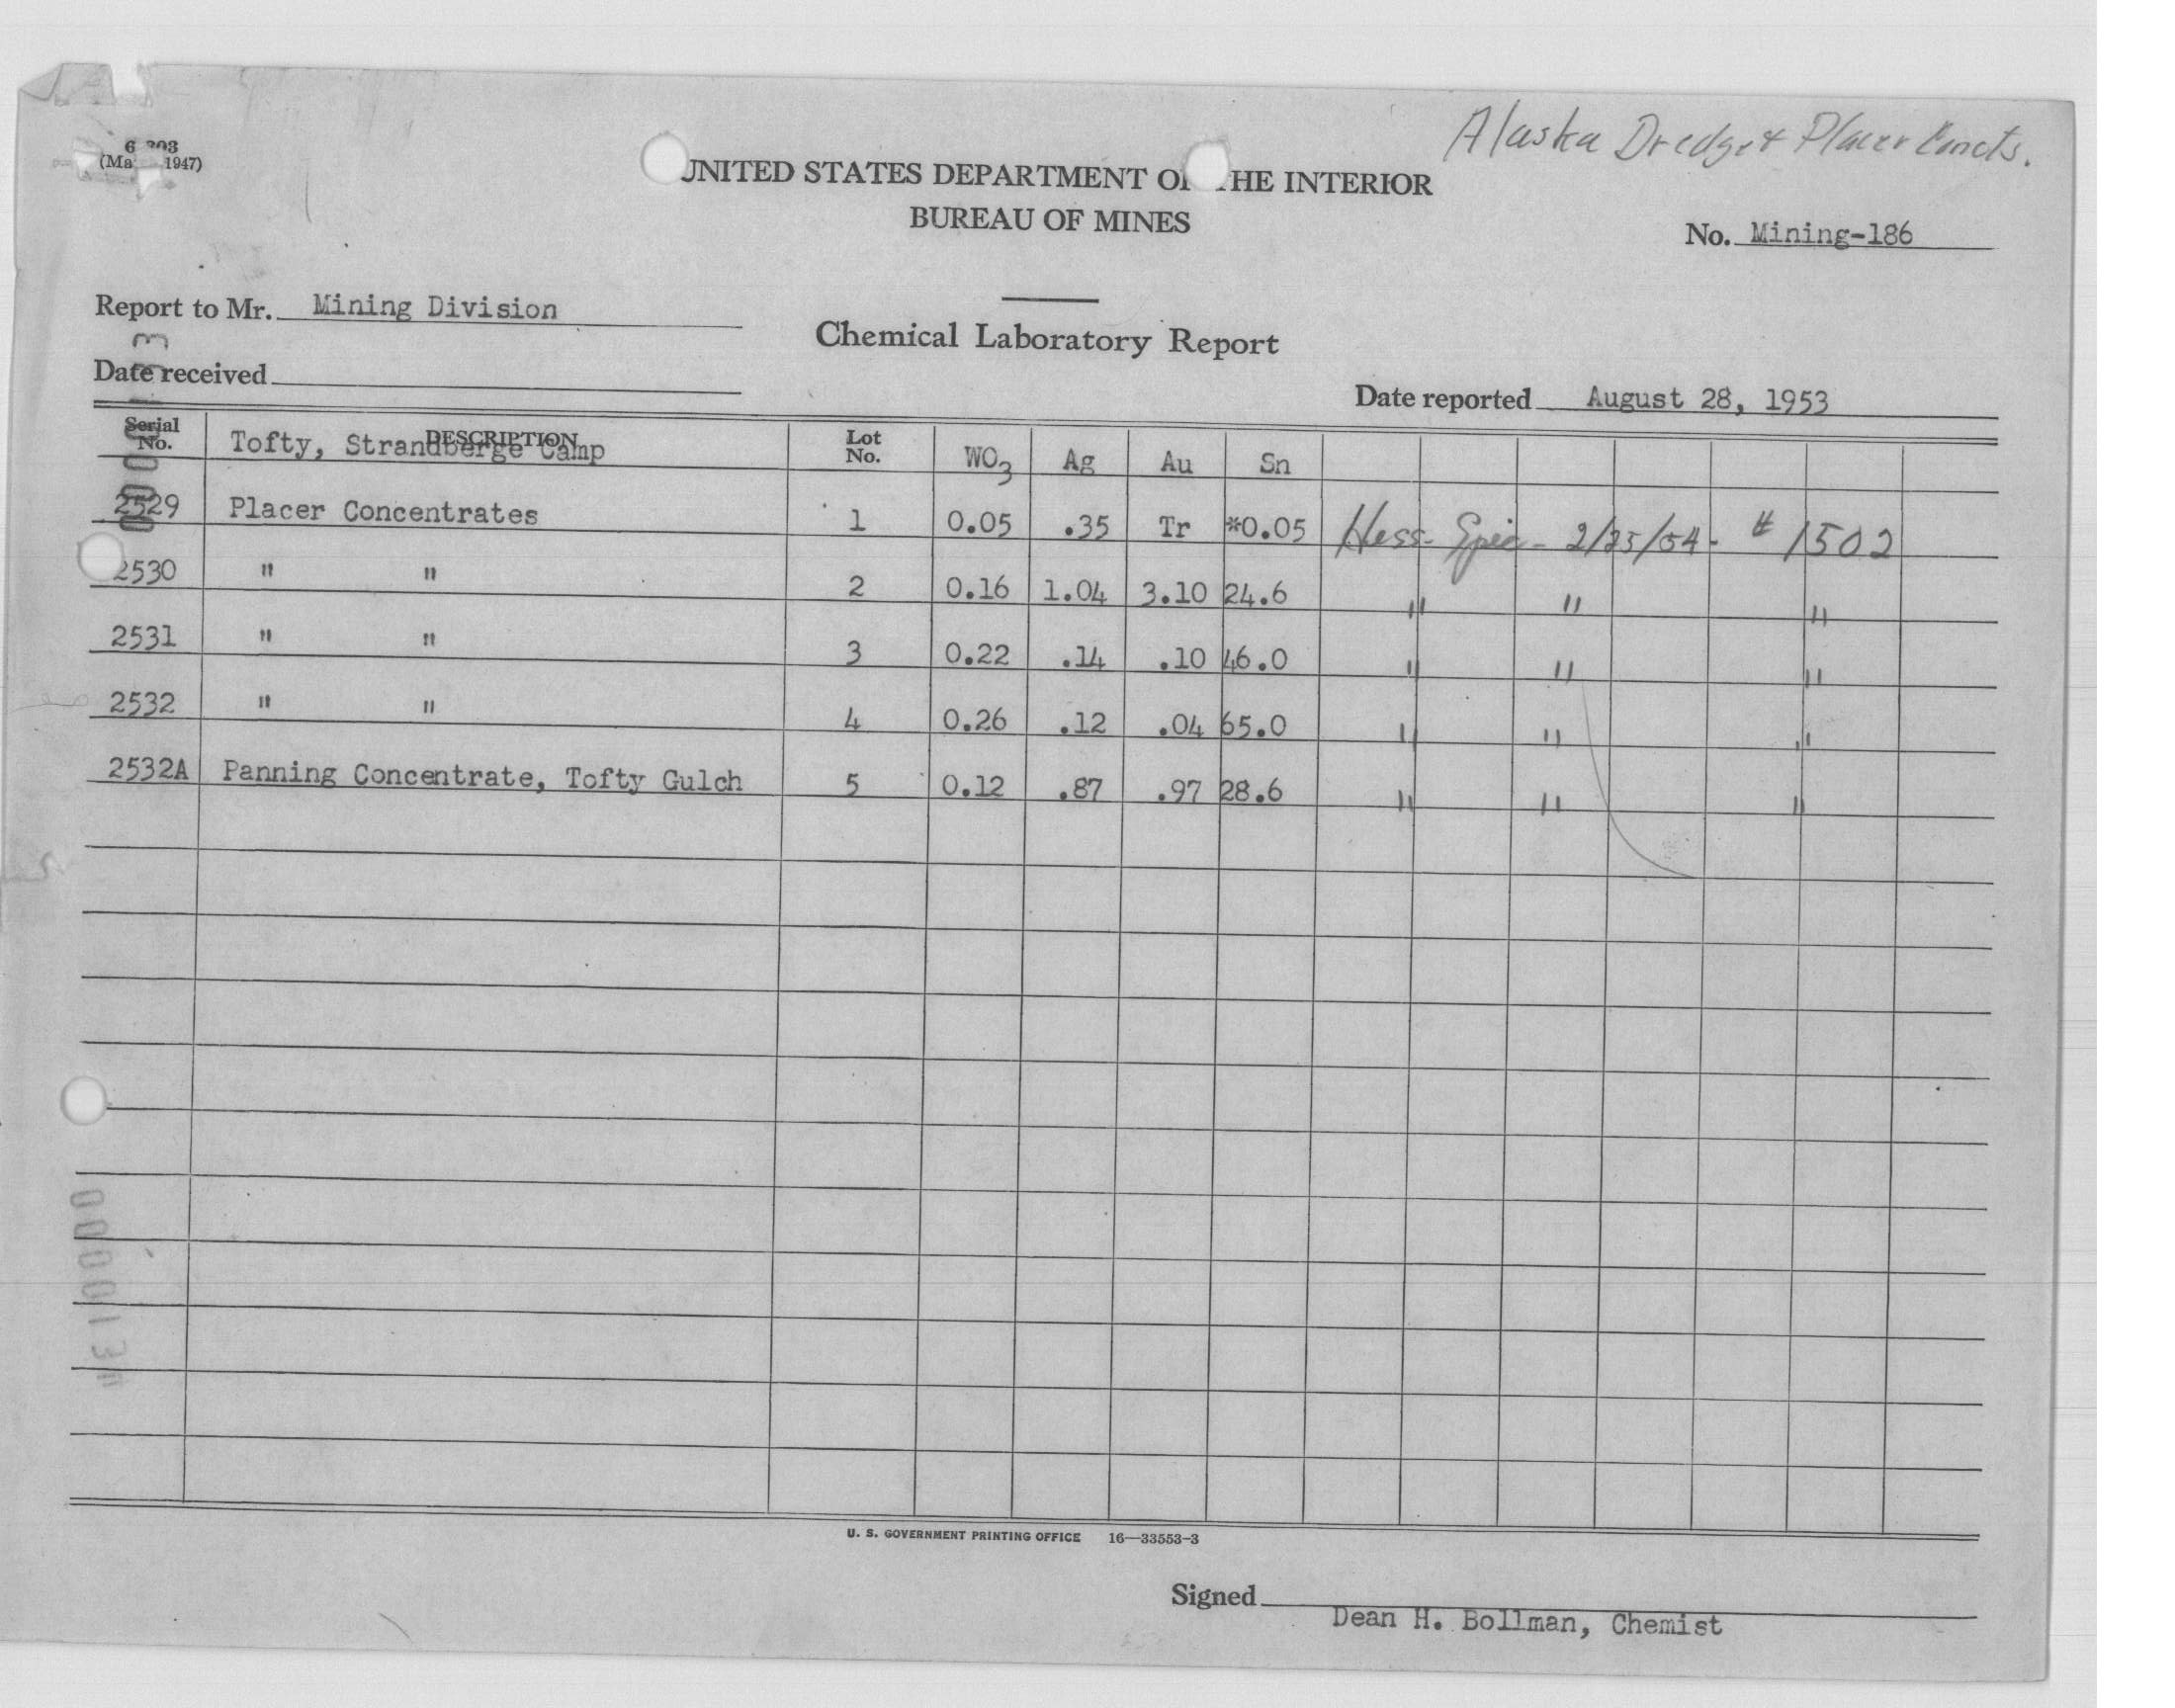 Alaska Dredge & Placer Concts.
(Ma 1947)
UNITED STATES DEPARTMENT OF THE INTERIOR
BUREAU OF MINES
No. Mining-186
Report to Mr. Mining Division
Chemical Laboratory Report
Date received
Date reported August 28, 1953
Serial No. DESCRIPTION Tofty, Strandberge Camp Lot No. WO3 Ag Au Sn
2529 Placer Concentrates 1 0.05 .35 Tr *0.05 Hess- Spec - 2/25/54 - # 1502
2530 " " 2 0.16 1.04 3.10 24.6 " " "
2531 " " 3 0.22 .14 .10 46.0 " " "
2532 " " 4 0.26 .12 .04 65.0 " " "
2532A Panning Concentrate, Tofty Gulch 5 0.12 .87 .97 28.6 " " "
U. S. GOVERNMENT PRINTING OFFICE 16—33553-3
Signed
Dean H. Bollman, Chemist